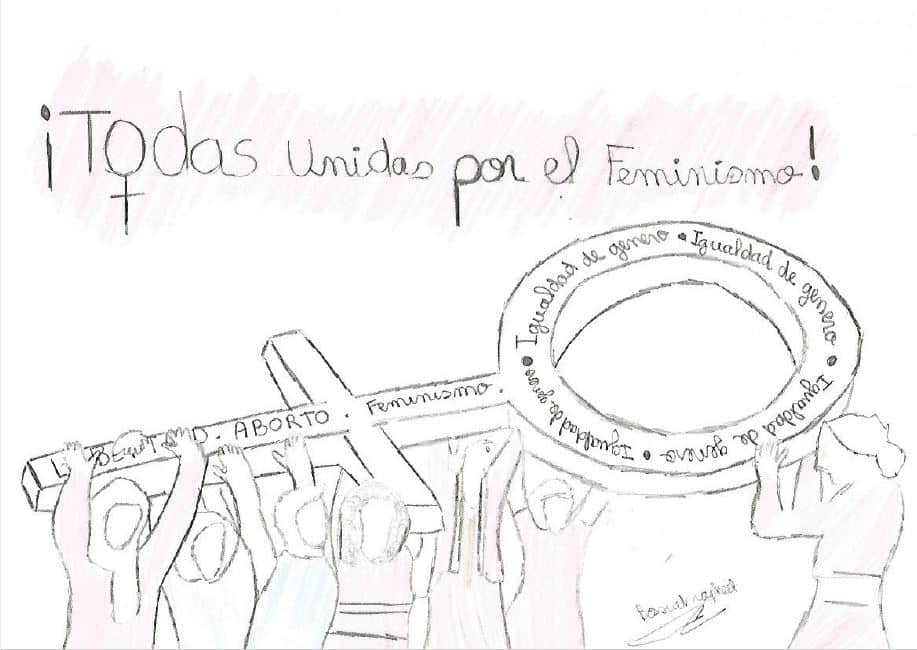 ¡Todas Unidas por el Feminismo!
Igualdad de genero • Igualdad de genero • Igualdad de genero • Igualdad de genero •
ABORTO. Feminismo.